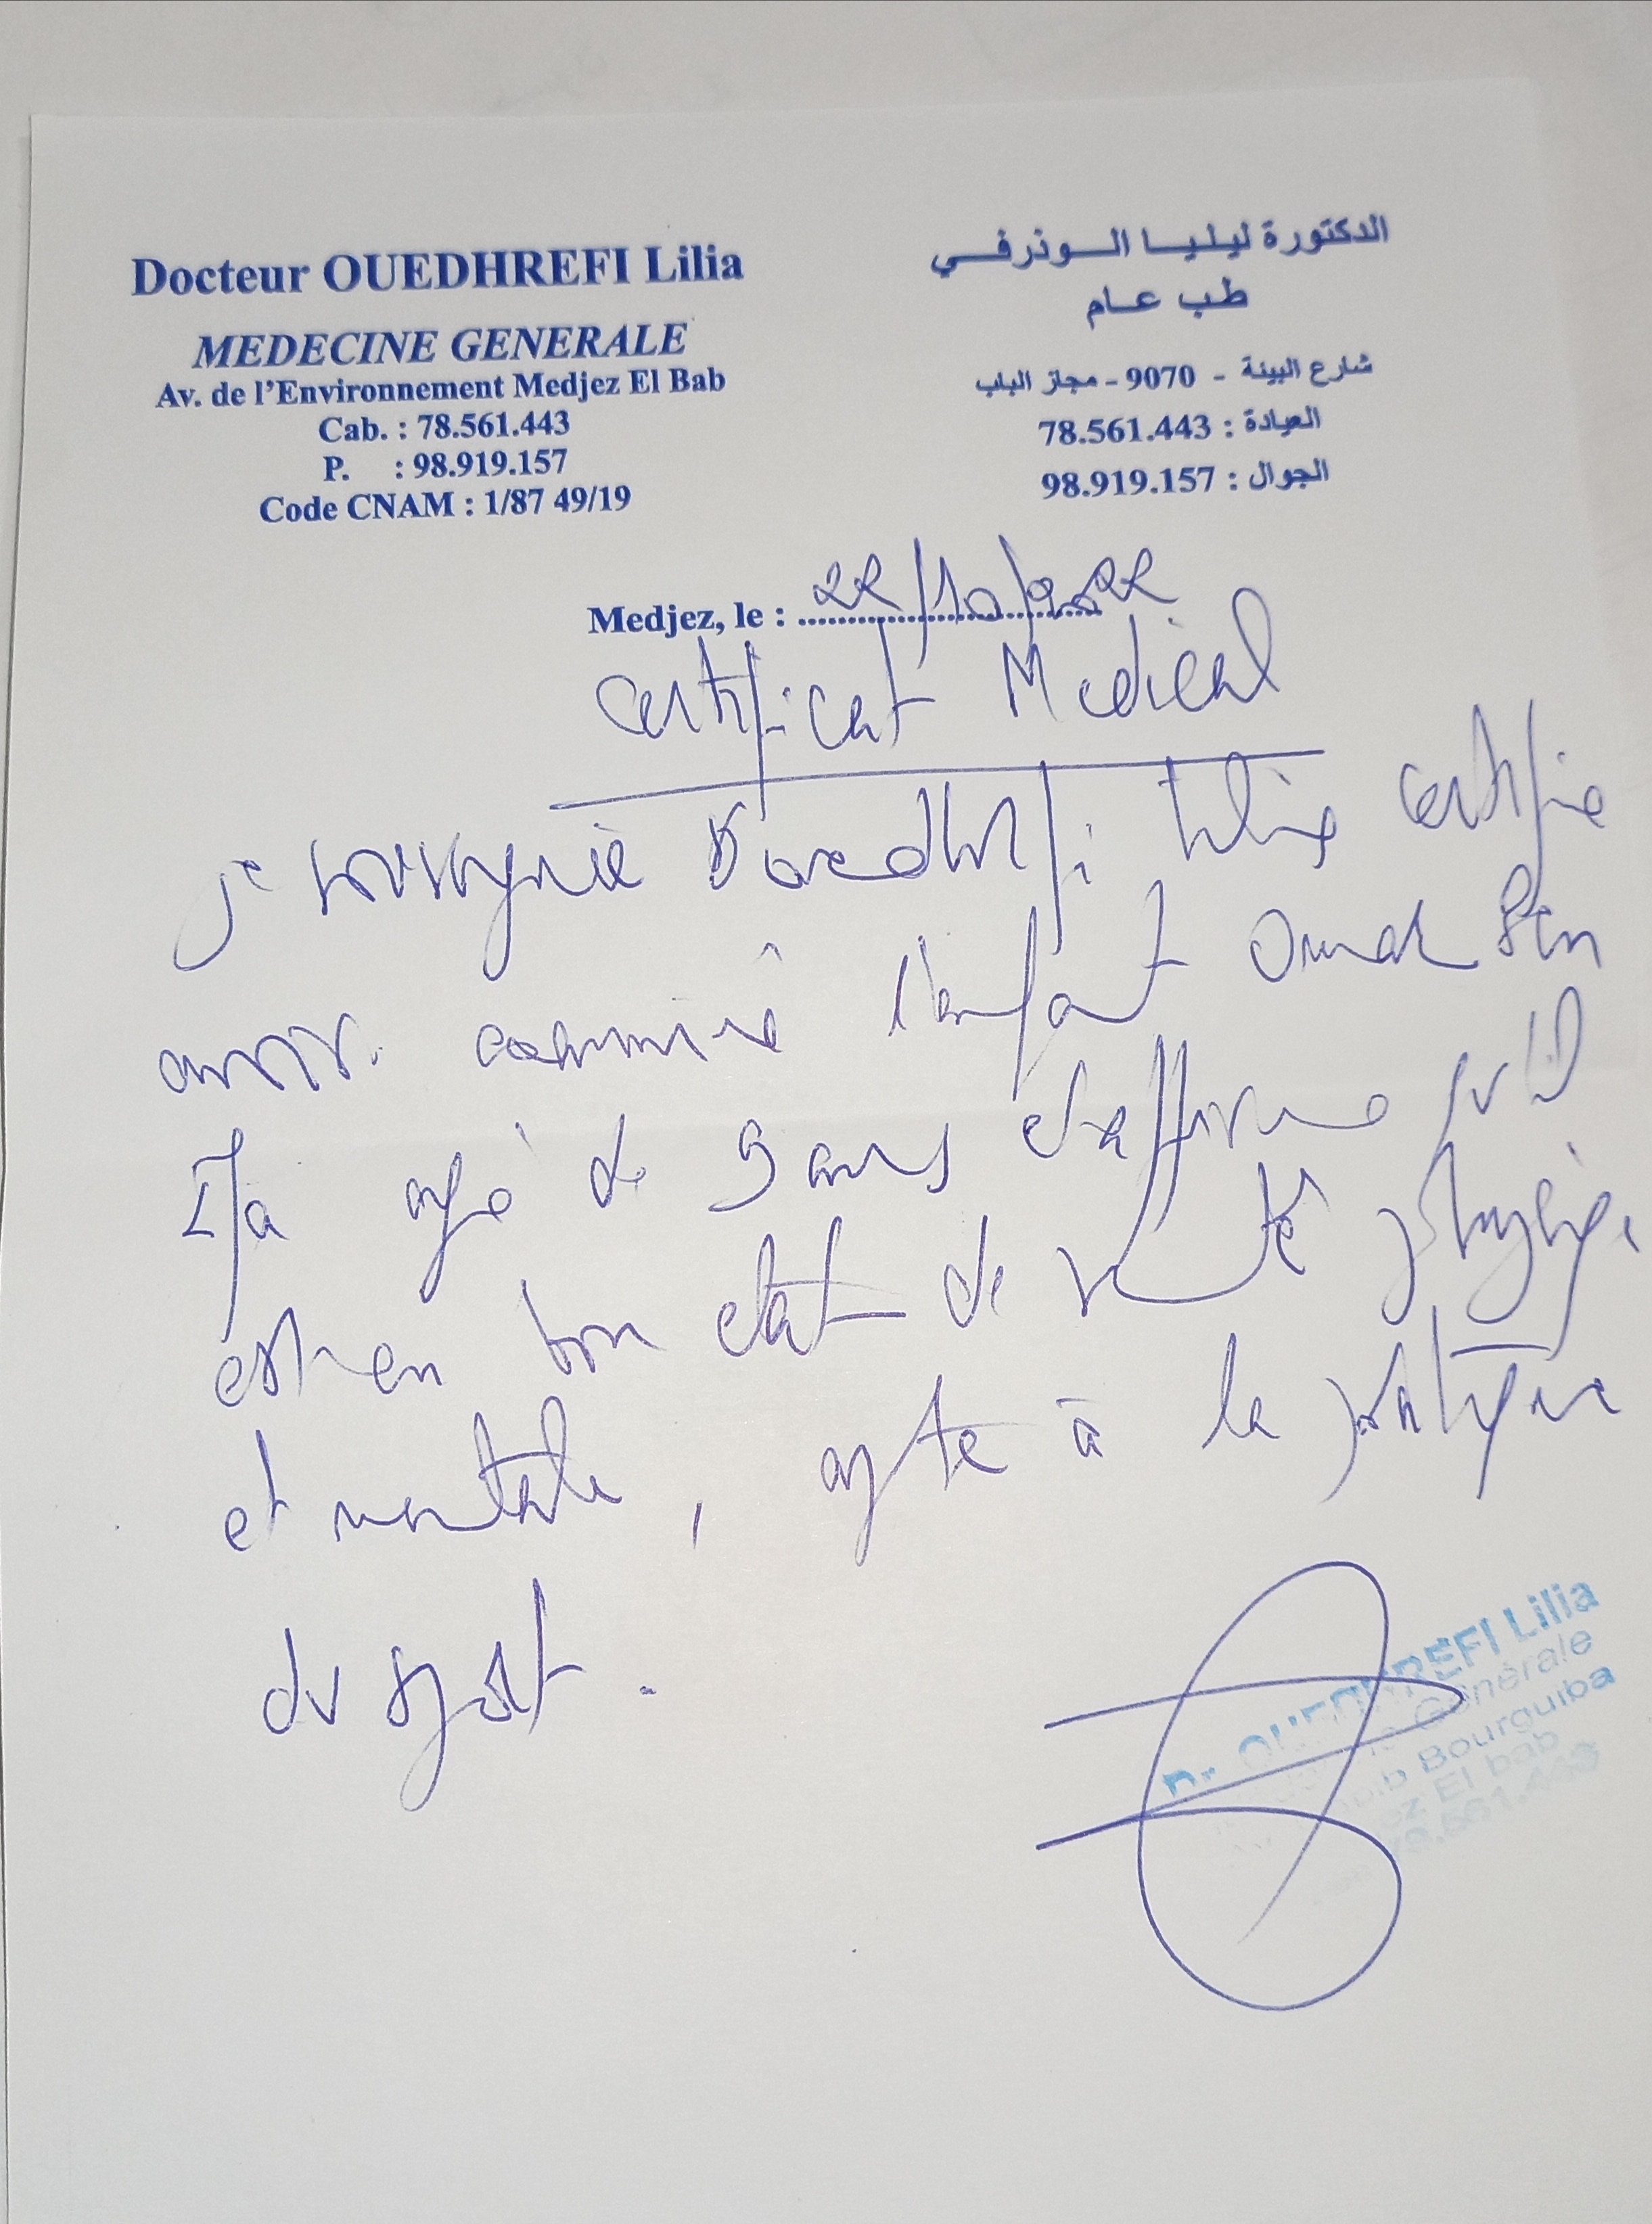 Docteur OUEDHREFI Lilia
MEDECINE GENERALE
Av. de l'Environnement Medjez El Bab
Cab. : 78.561.443
P. : 98.919.157
Code CNAM : 1/87 49/19
الدكتورة ليليا الوذرفي
طب عام
شارع البيئة - 9070 - مجاز الباب
العيادة : 78.561.443
الجوال : 98.919.157
Medjez, le : 22/10/2022
Certificat Medical
je soussignée Dr ouedhrefi Lilia certifie
avoir examiné l'enfant Omar Ben
agé de 9 ans et affirme qu'il
est en bon etat de santé physique
et mentale, apte à la pratique
du sport.
Dr OUEDHREFI Lilia
Générale
Bourguiba
El bab
78.561.443